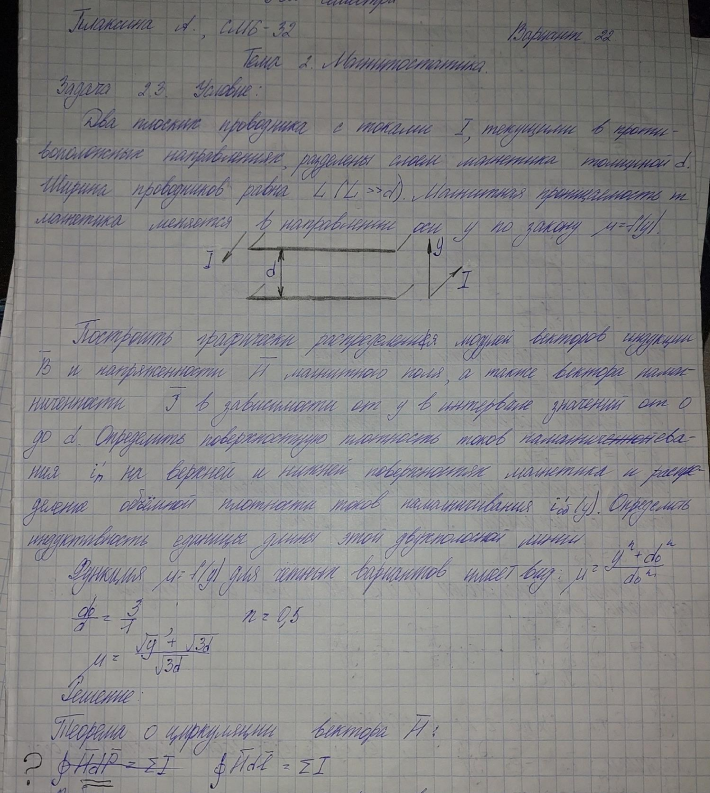 Плаксина А., СМ6-32 Вариант 22
Тема 2. Магнитостатика.
Задача 2.3. Условие:
Два плоских проводника с токами I, текущими в проти-
воположных направлениях, разделены слоем магнетика толщиной d.
Ширина проводников равна L (L >> d). Магнитная проницаемость m
магнетика меняется в направлении оси y по закону μ=f(y).
I d y I
Построить графически распределения модулей векторов индукции
B и напряженности H магнитного поля, а также вектора намаг-
ниченности J в зависимости от y в интервале значений от 0
до d. Определить поверхностную плотность токов намагничива-
ния i'п на верхней и нижней поверхностях магнетика и распре-
деление объёмной плотности токов намагничивания i'об(y). Определить
индуктивность единицы длины этой двухполосной линии
Функция μ=f(y) для четных вариантов имеет вид: μ = (y^n + d0^n)/d0^n
d0/d = 3/1 ; n = 0,5
μ = (√y + √3d)/√3d
Решение:
Теорема о циркуляции вектора H:
? ∮Hdl = ΣI ∮Hdl = ΣI